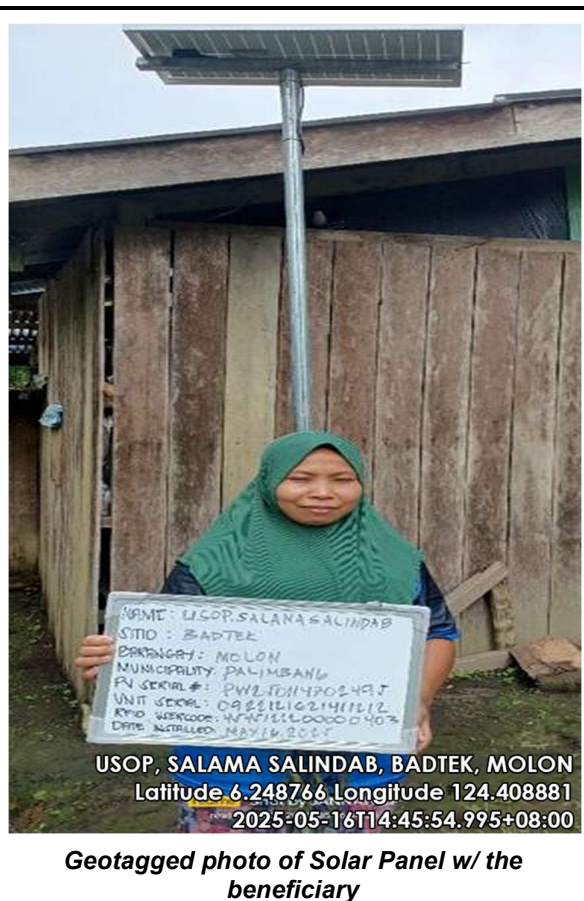 NAME: USOP. SALAMA SALINDAB
SITIO : BADTEK
BARANGAY: MOLON
MUNICIPALITY: PALIMBANG
PV SERIAL #:
UNIT SERIAL:
RFID USERCODE:
DATE INSTALLED: MAY 16, 2025
USOP, SALAMA SALINDAB, BADTEK, MOLON
Latitude 6.248766 Longitude 124.408881
2025-05-16T14:45:54.995+08:00
Geotagged photo of Solar Panel w/ the
beneficiary